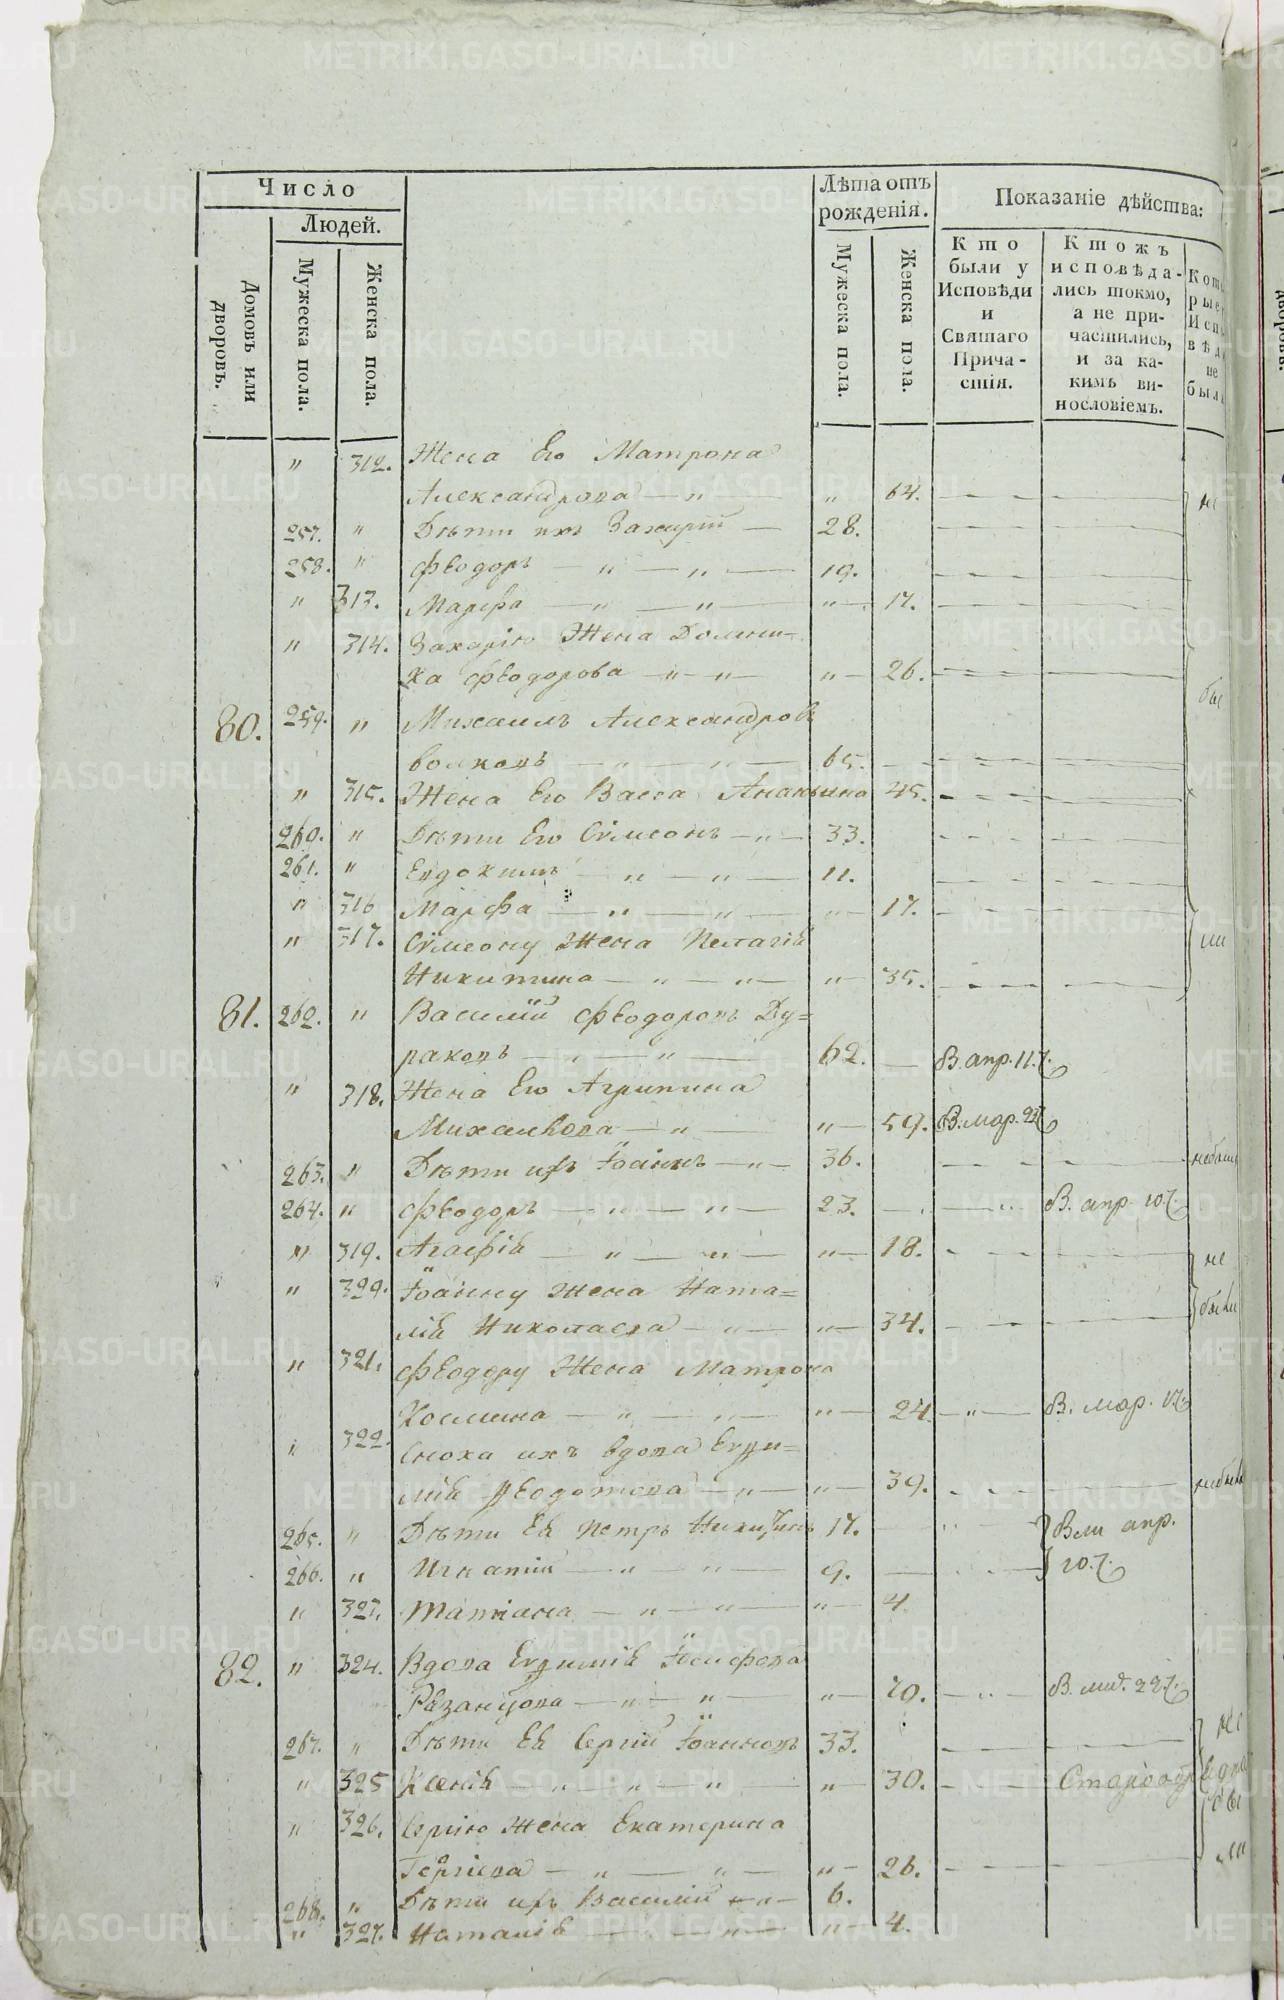 Число
Людей.
Домовъ или дворовъ.
Мужеска пола.
Женска пола.
Лѣта отъ рожденія.
Мужеска пола.
Женска пола.
Показаніе дѣйства:
Кто были у Исповѣди и Святаго Причастія.
Ктожъ исповѣдались токмо, а не причастились, и за какимъ винословіемъ.
" 312. Жена Его Матрона
Александрова — " — " 64. не
257. " Дѣти ихъ Захарій — 28.
258. " Ѳеодоръ — " — " — 19.
" 313. Марѳа — " — " — " — 17.
" 314. Захарію Жена Домни-
ка Ѳеодорова — " — " — " — 26.
80. 259. " Михаилъ Александровъ
Волковъ — " — " — 65.
" 315. Жена Его Васса Ананьина 45.
260. " Дѣти Его Сѵмеонъ — " — 33.
261. " Евдокимъ — " — " — 11.
" 316 Марѳа — " — " — " — 17.
" 317. Сѵмеону Жена Пелагія ли
Никитина — " — " — " — 35.
81. 262. " Василій Ѳеодоровъ Ду=
раковъ — " — " — 62. — В. апр. 11.
" 318. Жена Его Агрипина
Михаилова — " — " — 59. В. мар. 27
263. " Дѣти ихъ Іоаннъ — " — 36. небыли
264. " Ѳеодоръ — " — " — 23. В. апр. 10.
" 319. Агафія — " — " — " — 18. не
" 320. Іоанну Жена Ната= были
лія Николаева — " — " — 34.
" 321. Ѳеодору Жена Матрона
Космина — " — " — " — 24 — " — В. мар.
" 322. Сноха ихъ вдова Евѳи=
мія Ѳеодотова — " — " — 39. небыла
265. " Дѣти Ея Петръ Никитинъ 17. апр.
266. " Игнатій — " — " — 9. 10.
" 323. Татіана — " — " — " — 4.
82. " 324. Вдова Евѳимія Іосифова
Рязанцова — " — " — " — 70. — " —
267. " Дѣти Ея Сергій Іоанновъ 33. не
" 325 Ксенія — " — " — " — " — 30.
" 326. Сергію Жена Екатерина
Георгіева — " — " — " — 26. ли
268. " Дѣти ихъ Василій — " — 6.
" 327. Наталія — " — " — 4.
METRIKI.GASO-URAL.RU